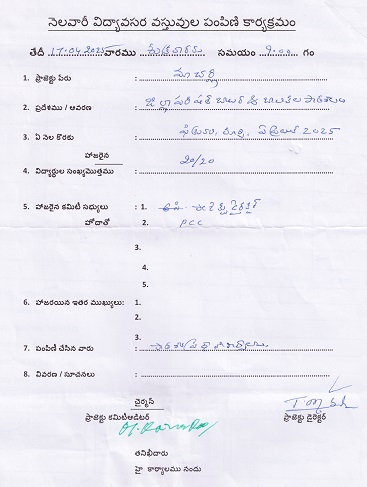 నెలవారీ విద్యావసర వస్తువుల పంపిణి కార్యక్రమం
తేదీ 17.04.2025 వారము గురువారము సమయం 9:00 గం
1. ప్రాజెక్టు పేరు : మాచర్ల
2. ప్రదేశము / ఆవరణ : జిల్లా పరిషత్ బాలుర & బాలికల పాఠశాల
3. ఏ నెల కొరకు : ఫిబ్రవరి, మార్చి, ఏప్రిల్ 2025
హాజరైన
4. విద్యార్థుల సంఖ్యమొత్తము : 20/20
5. హాజరైన కమిటీ సభ్యులు : 1.
హోదాతో 2. PCC
3.
4.
5.
6. హాజరయిన ఇతర ముఖ్యులు: 1.
2.
3.
7. పంపిణి చేసిన వారు :
8. వివరణ / సూచనలు :
చైర్మన్
ప్రాజెక్టు కమిటిఆడిటర్ ప్రాజెక్టు డైరెక్టర్
తనిఖీదారు
హై కార్యాలము నందు